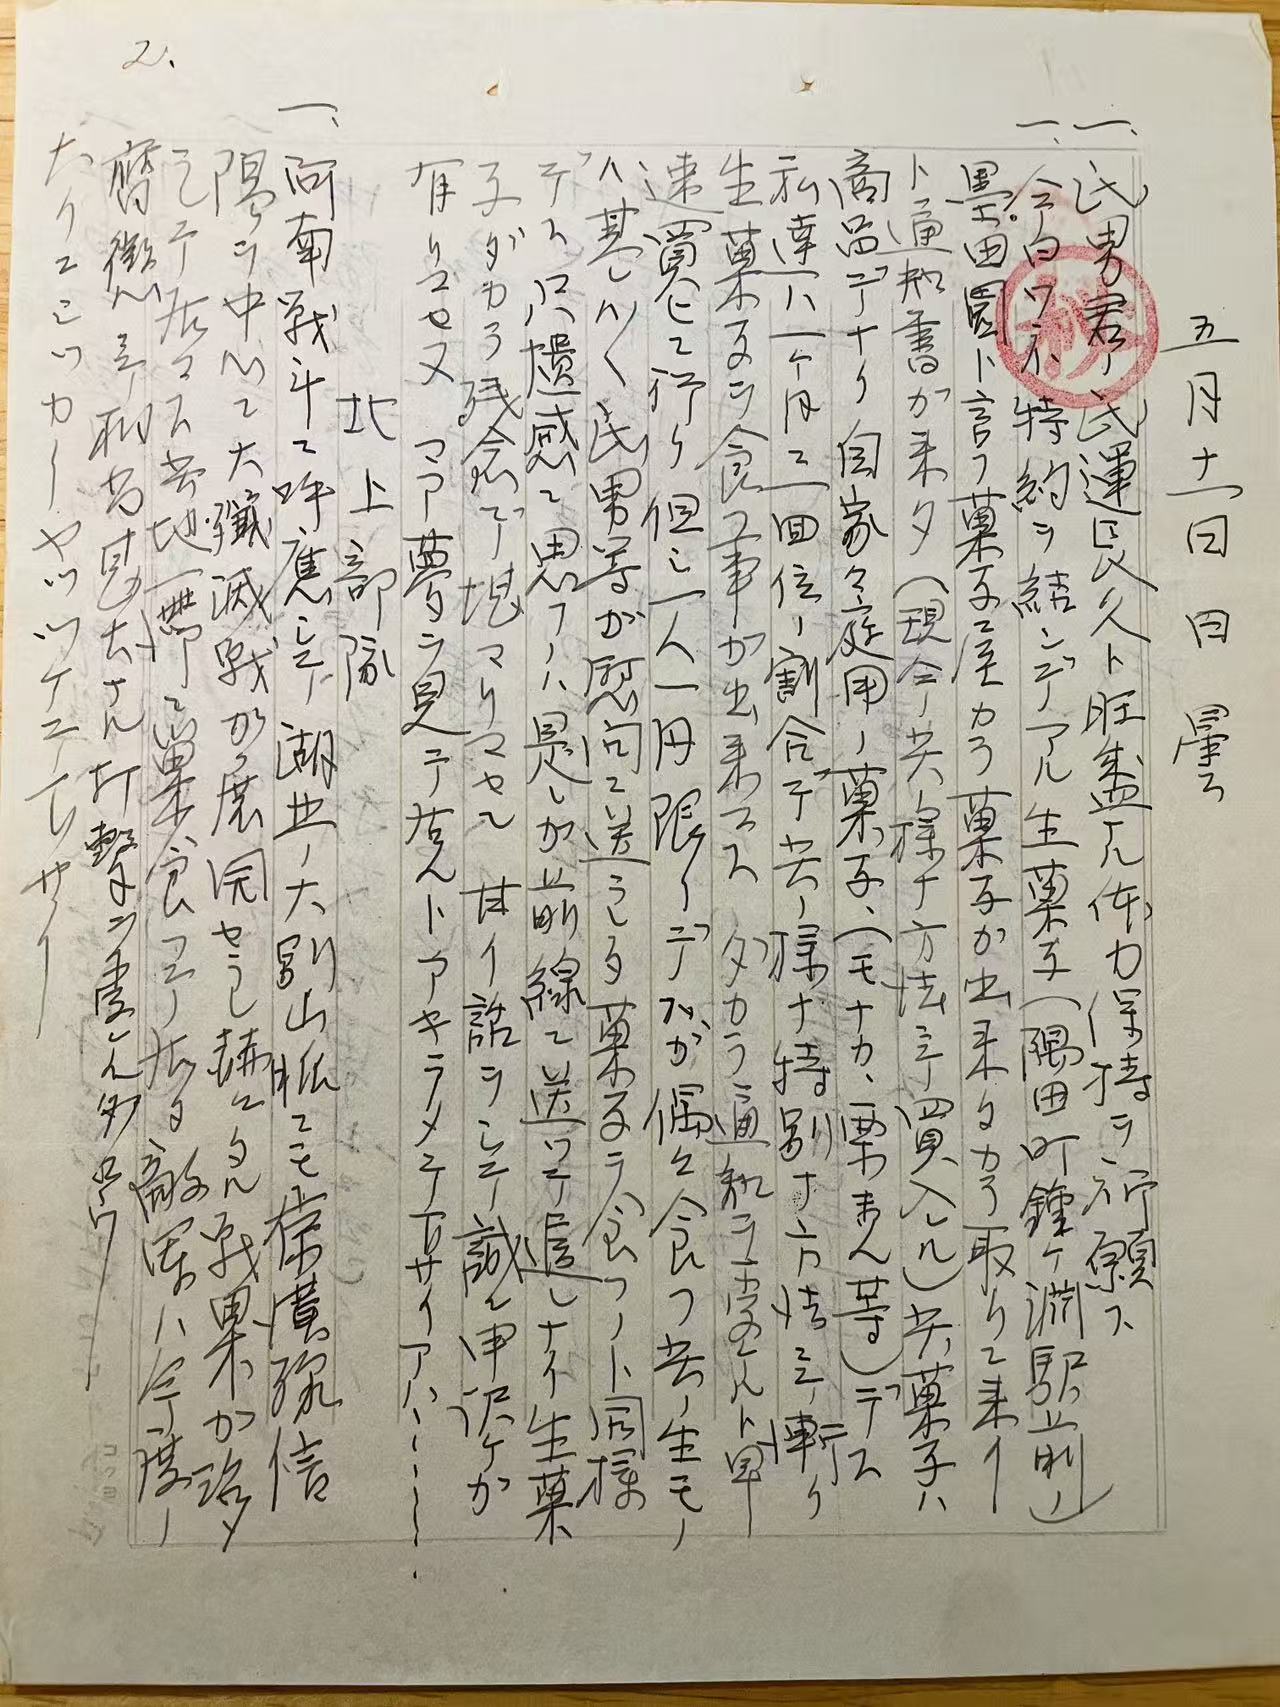 2.
五月十一日 日 曇
一、民男君ノ武運長久ト旺盛ナル体力保持ヲ祈願ス
一、今日ワネ特約ヲ結ンデアル生菓子(隅田町鐘ヶ淵駅前ノ)
墨田園ト言フ菓子屋カラ菓子ガ出来タカラ取リニ来イ
ト通知書ガ来タ(現今ノ共様ナ方法ニテ買入レル)共菓子ハ
商品デナク自家々庭用ノ菓子、(モナカ、栗まん等)デス
私達ハ一ヶ月ニ一回位ノ割合デ共ノ様ナ特別ナ方法ニテ漸ク
生菓子ヲ食フ事ガ出来マス ダカラ通知ヲ受ケルト早
速買ヒニ行ク但シ一人一円限リデスガ偶ニ食フ共ノ生モノ
ハ甚シク民男等ガ慰問ニ送ラレタ菓子ヲ食フノト同様
デス 只遺感ニ思フノハ是レガ前線ニ送ッテ遣レナイ生菓
子ダカラ残念デ堪マリマセン 甘イ話ヲシテ誠ニ申訳ケガ
有リマセヌ マア夢ヲ見テ居ルトアキラメテ下サイアハ……
北上部隊
一、河南戦斗ニ呼應シテ湖北ノ大別山脈ニモ
陽ヲ中心ニ大殲滅戦ガ展開セラレ赫々タル戦果ガ
シテ居マス共地一帯ニ巣食フテ居タ敵軍ハ今度ノ
膺懲ニテ相当甚大ナル打撃ヲ受ケタダロウ
大イニシッカリヤッツケテ下サイ
秘